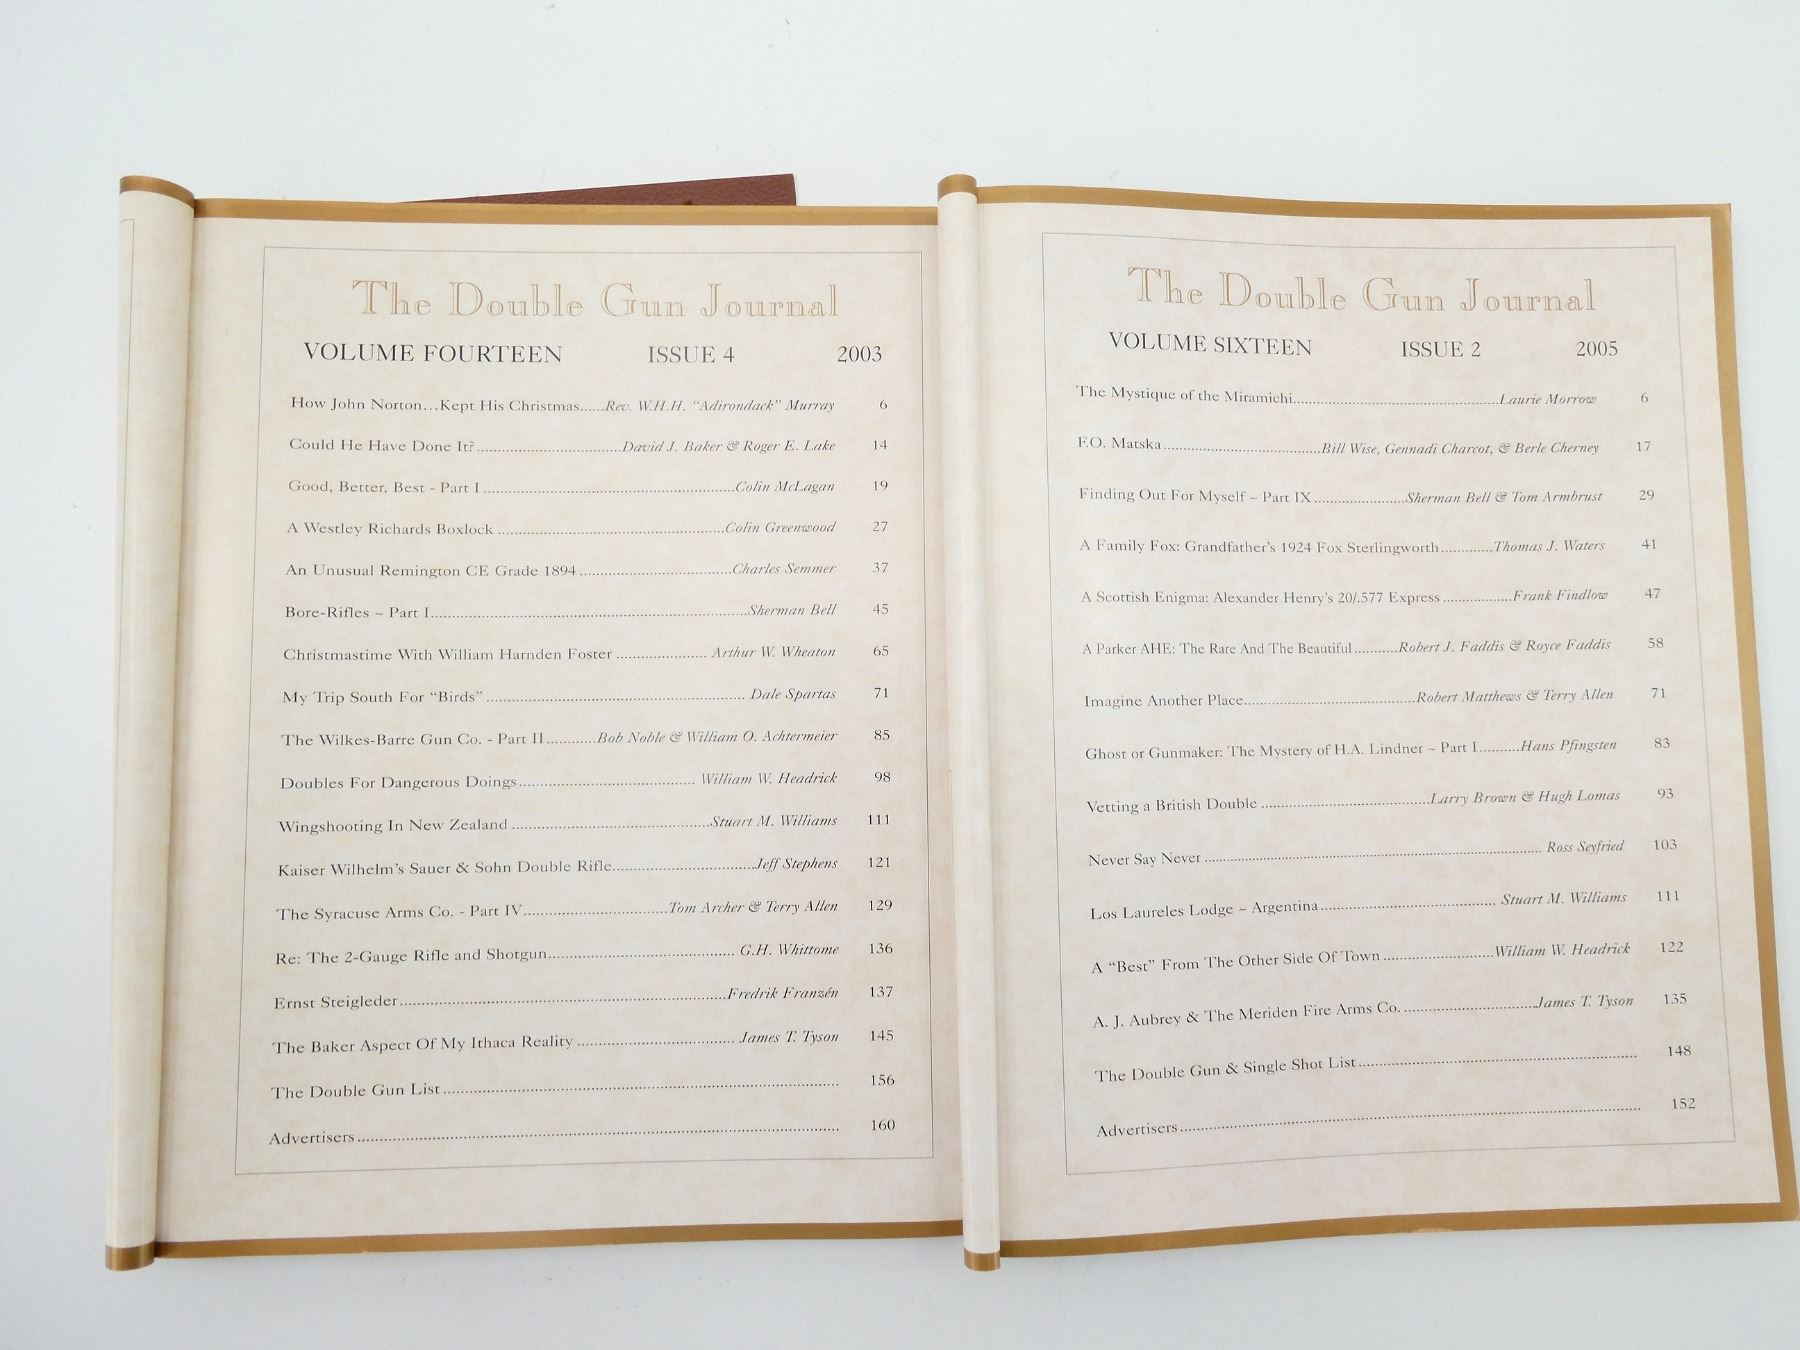 The Double Gun Journal
VOLUME FOURTEEN ISSUE 4 2003
How John Norton...Kept His Christmas......Rev. W.H.H. “Adirondack” Murray 6
Could He Have Done It?....................David J. Baker & Roger E. Lake 14
Good, Better, Best - Part I....................Colin McLagan 19
A Westley Richards Boxlock....................Colin Greenwood 27
An Unusual Remington CE Grade 1894....................Charles Semmer 37
Bore-Rifles ~ Part I....................Sherman Bell 45
Christmastime With William Harnden Foster.................... Arthur W. Wheaton 65
My Trip South For “Birds”.................... Dale Spartas 71
The Wilkes-Barre Gun Co. - Part II...........Bob Noble & William O. Achtermeier 85
Doubles For Dangerous Doings.................... William W. Headrick 98
Wingshooting In New Zealand....................Stuart M. Williams 111
Kaiser Wilhelm’s Sauer & Sohn Double Rifle....................Jeff Stephens 121
The Syracuse Arms Co. - Part IV....................Tom Archer & Terry Allen 129
Re: The 2-Gauge Rifle and Shotgun.................... G.H. Whittome 136
Ernst Steigleder....................Fredrik Franzén 137
The Baker Aspect Of My Ithaca Reality.................... James T. Tyson 145
The Double Gun List.................... 156
Advertisers.................... 160
The Double Gun Journal
VOLUME SIXTEEN ISSUE 2 2005
The Mystique of the Miramichi....................Laurie Morrow 6
F.O. Matska....................Bill Wise, Gennadi Charcot, & Berle Cherney 17
Finding Out For Myself ~ Part IX....................Sherman Bell & Tom Armbrust 29
A Family Fox: Grandfather’s 1924 Fox Sterlingworth.............Thomas J. Waters 41
A Scottish Enigma: Alexander Henry’s 20/.577 Express.................Frank Findlow 47
A Parker AHE: The Rare And The Beautiful...........Robert J. Faddis & Royce Faddis 58
Imagine Another Place....................Robert Matthews & Terry Allen 71
Ghost or Gunmaker: The Mystery of H.A. Lindner ~ Part I..........Hans Pfingsten 83
Vetting a British Double....................Larry Brown & Hugh Lomas 93
Never Say Never.................... Ross Seyfried 103
Los Laureles Lodge ~ Argentina.................... Stuart M. Williams 111
A “Best” From The Other Side Of Town....................William W. Headrick 122
A. J. Aubrey & The Meriden Fire Arms Co.....................James T. Tyson 135
The Double Gun & Single Shot List.................... 148
Advertisers.................... 152